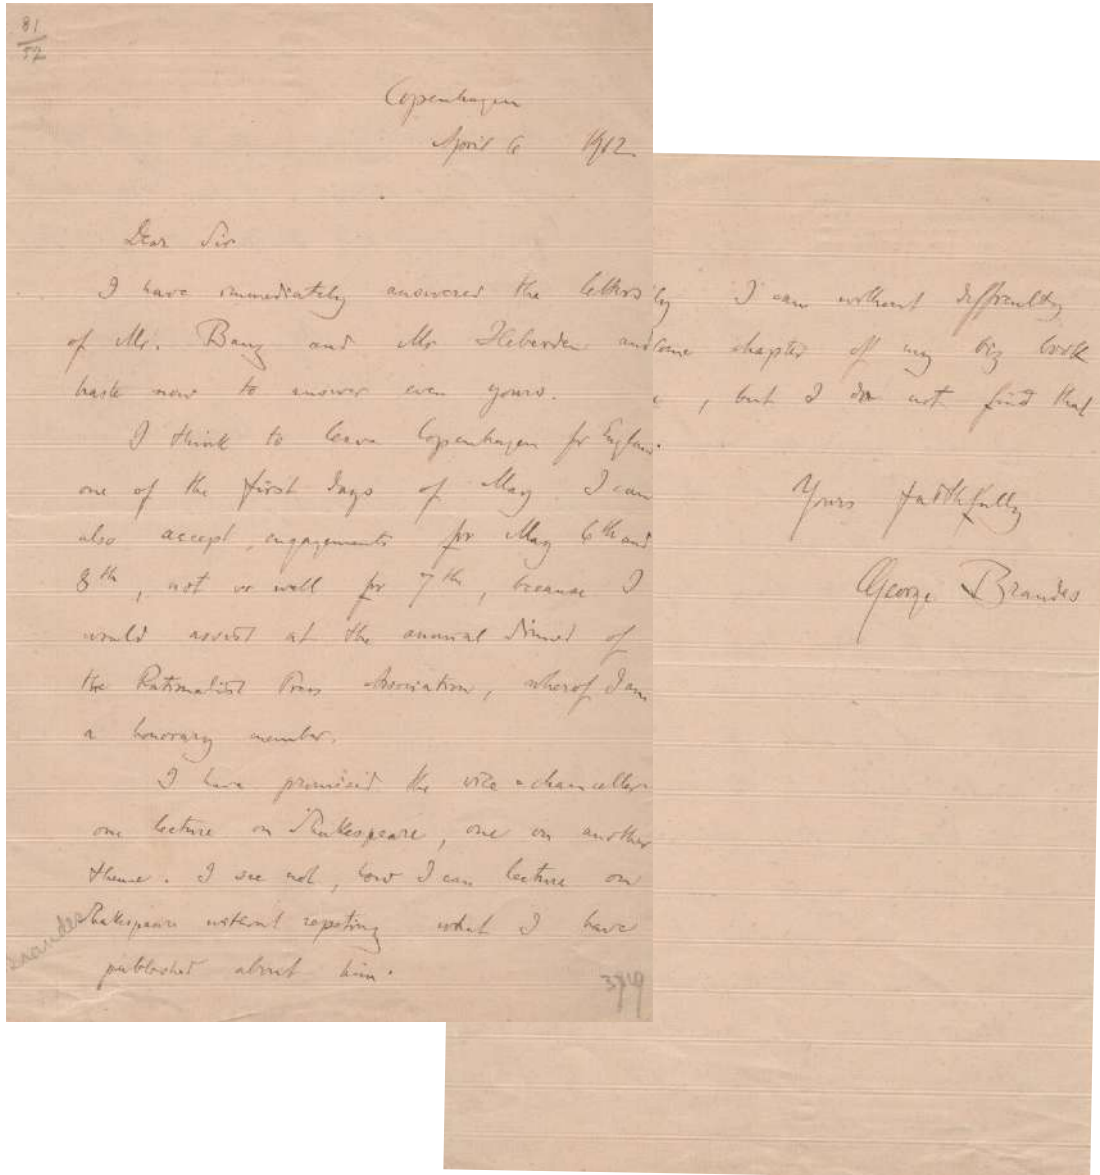 81
57
Copenhagen
April 6 1912
Dear Sir
I have immediately answered the letters
of Mr. Bang and Mr Heberden and
haste now to answer even yours.
I think to leave Copenhagen for England
one of the first days of May. I can
also accept engagements for May 6th and
8th, not so well for 7th, because I
would assist at the annual dinner of
the Rationalist Press Association, wherof I am
a honorary member.
I have promised the vice-chancellor
one lecture on Shakespeare, one on another
theme. I see not, how I can lecture on
Shakespeare without repeating what I have
published about him.
3719
I can without difficulty
some chapter of my big book
, but I do not find that
Yours faithfully
George Brandes